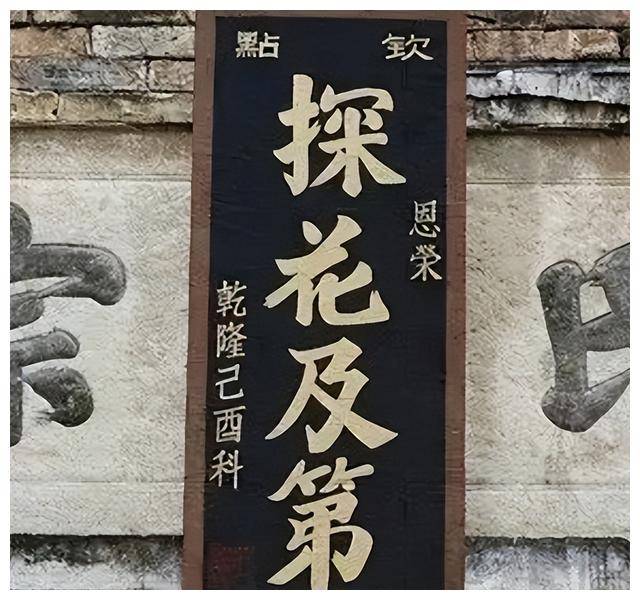 欽點
恩榮
探花及第
乾隆己酉科